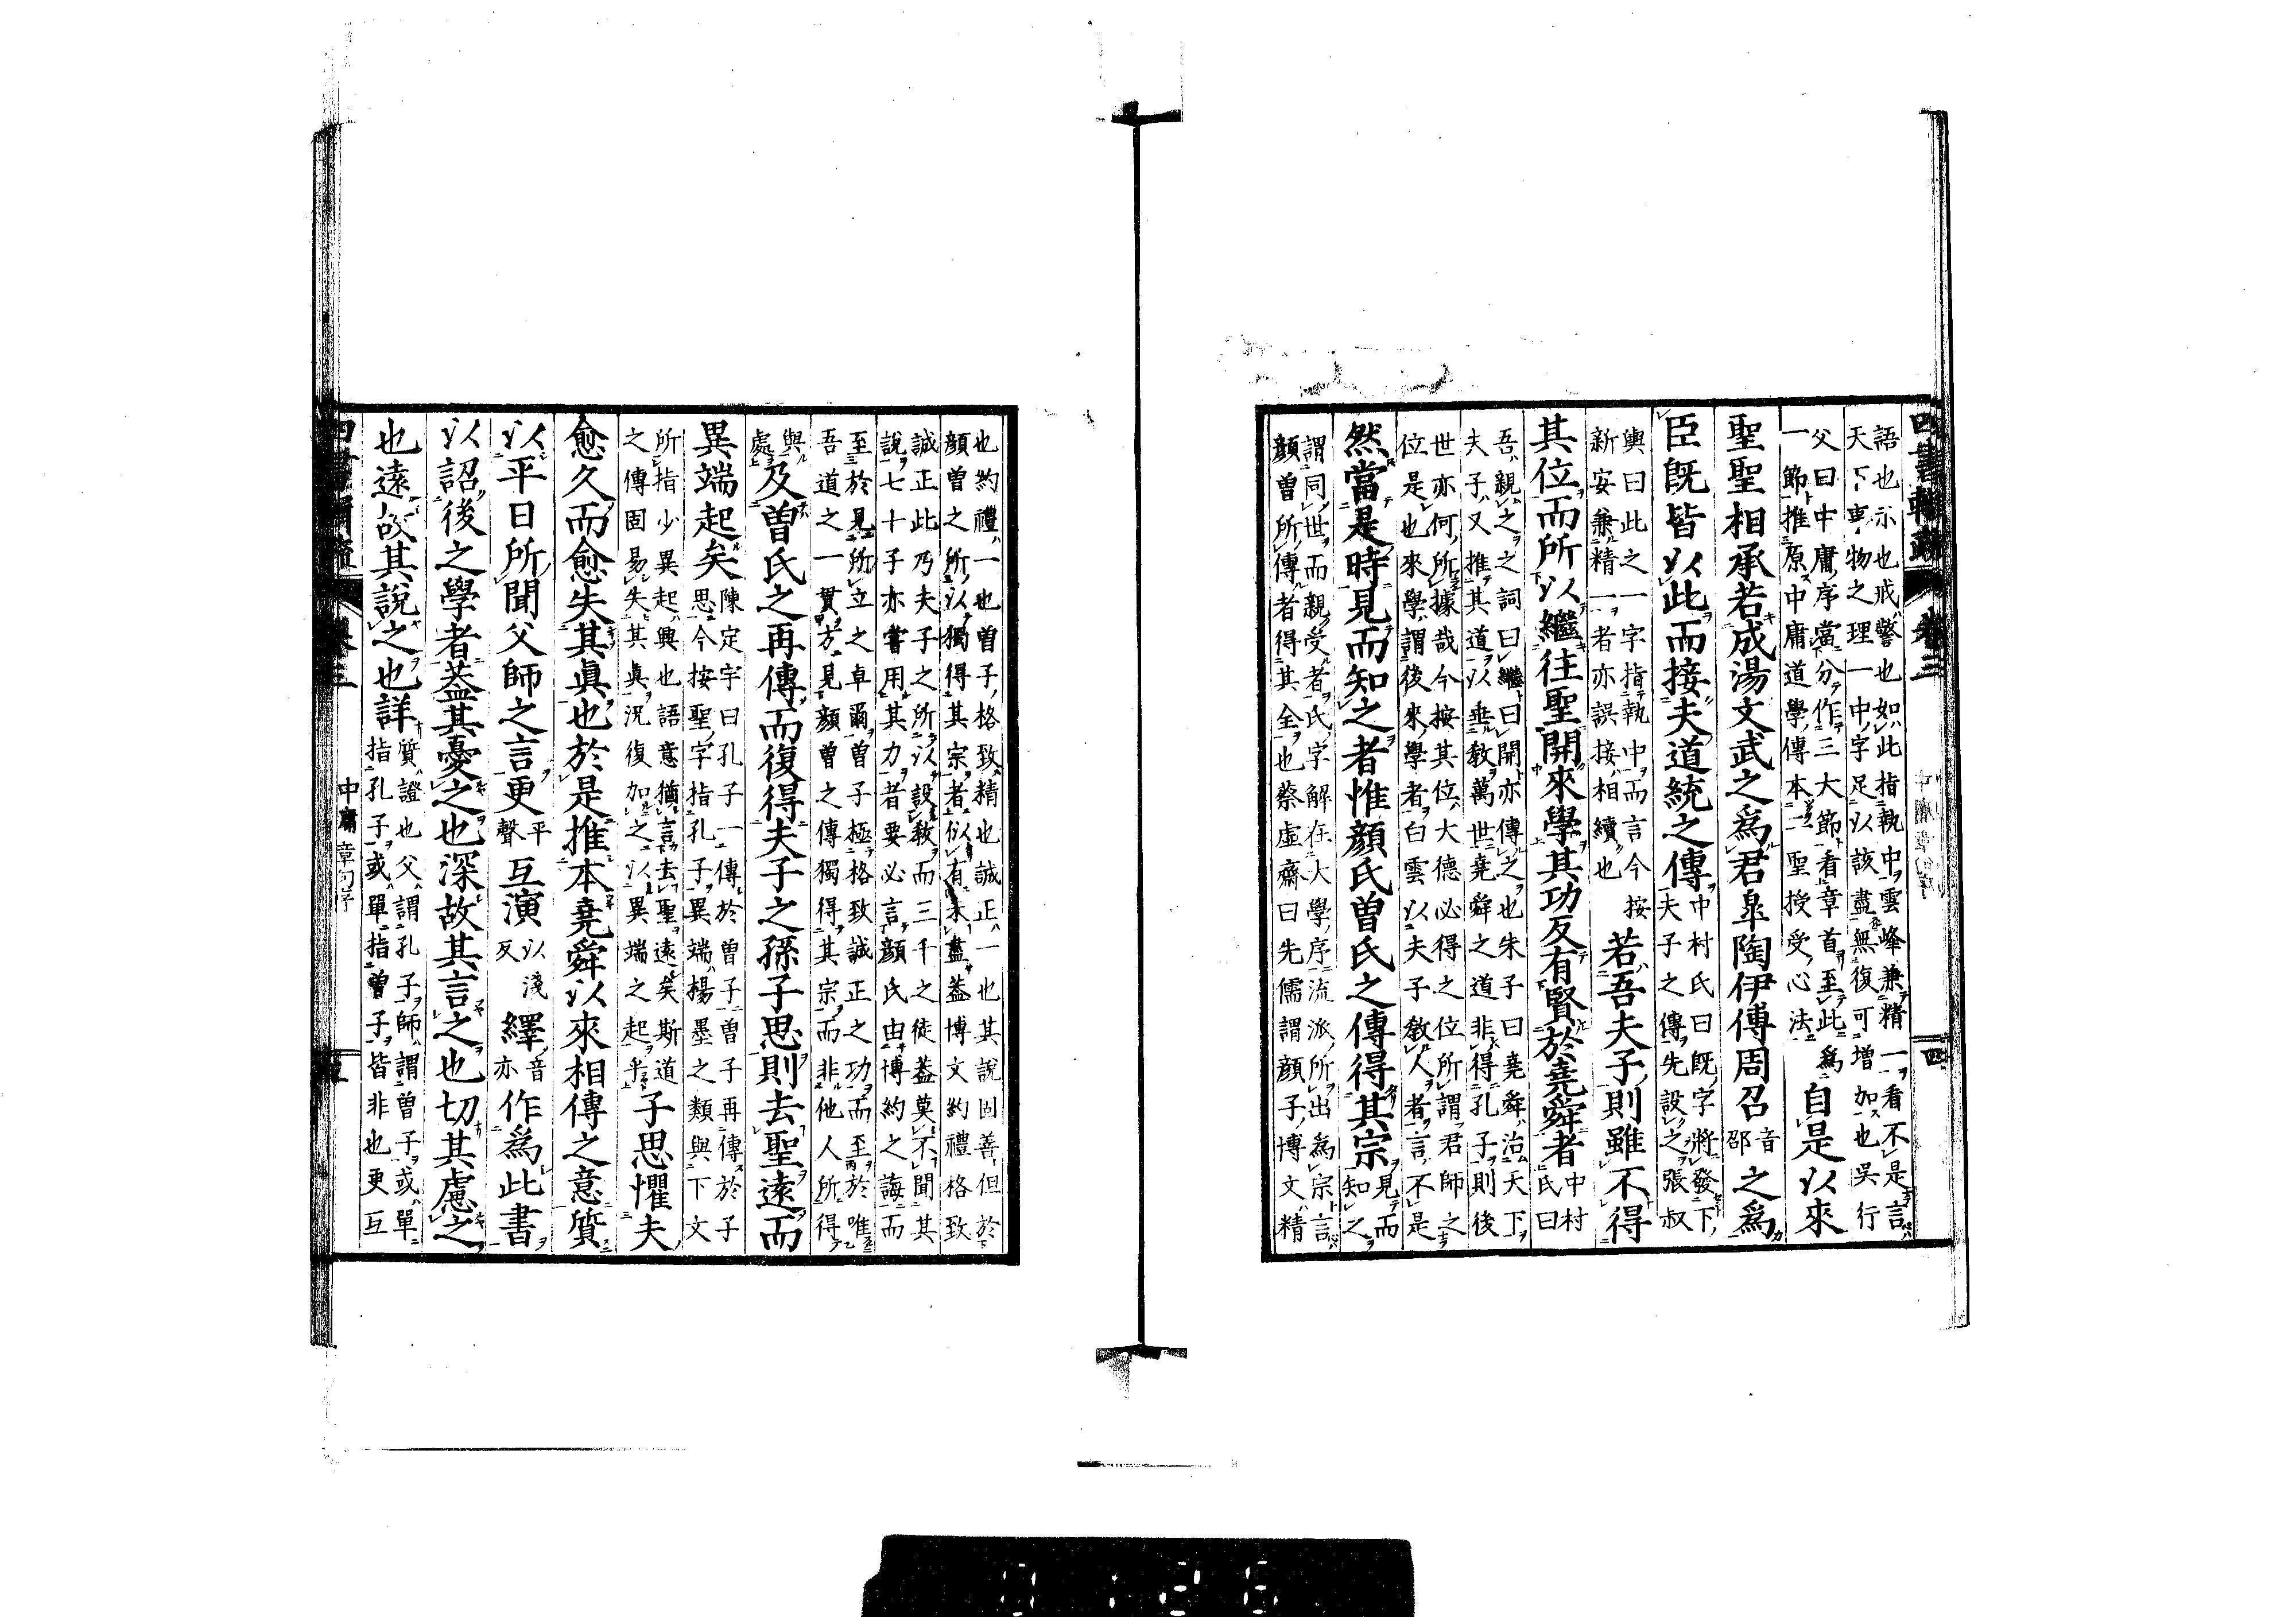 四書輯疏 卷三 中庸章句序 四
語也示也戒警也如此指執中雲峰兼精一看不是言
天下事物之理一中字足以該盡無復可增加也吳行
父曰中庸序當分作三大節看章首至此爲
一節推原中庸道學傳本二聖授受心法
自是以來
聖聖相承若成湯文武之爲君皐陶伊傅周召音邵之爲
臣旣皆以此而接夫道統之傳
中村氏曰旣字將發下
夫子之傳先設之張叔
輿曰此之一字指執中而言今按
新安兼精一者亦誤接相續也
若吾夫子則雖不得
其位而所以繼往聖開來學其功反有賢於堯舜者
中村氏曰
吾親之之詞曰繼曰開亦傳之也朱子曰堯舜治天下
夫子又推其道以垂敎萬世堯舜之道非得孔子則後
世亦何所據哉今按其位大德必得之位所謂君師之
位是也來學謂後來學者白雲以夫子敎人者言不是
然當是時見而知之者惟顏氏曾氏之傳得其宗
見而知之
謂同世而親受者氏字解在大學序流派所出爲宗言
顏曾所傳者得其全也蔡虛齋曰先儒謂顏子博文精
也約禮一也曾子格致精也誠正一也其說固善但於
顏曾之所以獨得其宗者似有未盡蓋博文約禮格致
誠正此乃夫子之所以設敎而三千之徒蓋莫不聞其
說七十子亦嘗用其力者要必言顏氏由博約之誨而
至於見所立之卓爾曾子極格致誠正之功而至於唯
吾道之一貫方見顏曾之傳獨得其宗而非他人所得
與處
及曾氏之再傳而復得夫子之孫子思則去聖遠而
異端起矣
陳定宇曰孔子一傳於曾子曾子再傳於子
思今按聖字指孔子異端楊墨之類與下文
所指少異起興也語意猶言去聖遠矣斯道
之傳固易失其眞況復加之以異端之起乎
子思懼夫
愈久而愈失其眞也於是推本堯舜以來相傳之意質
以平日所聞父師之言更平聲互演以淺反繹音亦作爲此書
以詔後之學者蓋其憂之也深故其言之也切其慮之
也遠故其說之也詳
質證也父謂孔子師謂曾子或單
指孔子或單指曾子皆非也更互
中庸 章句序